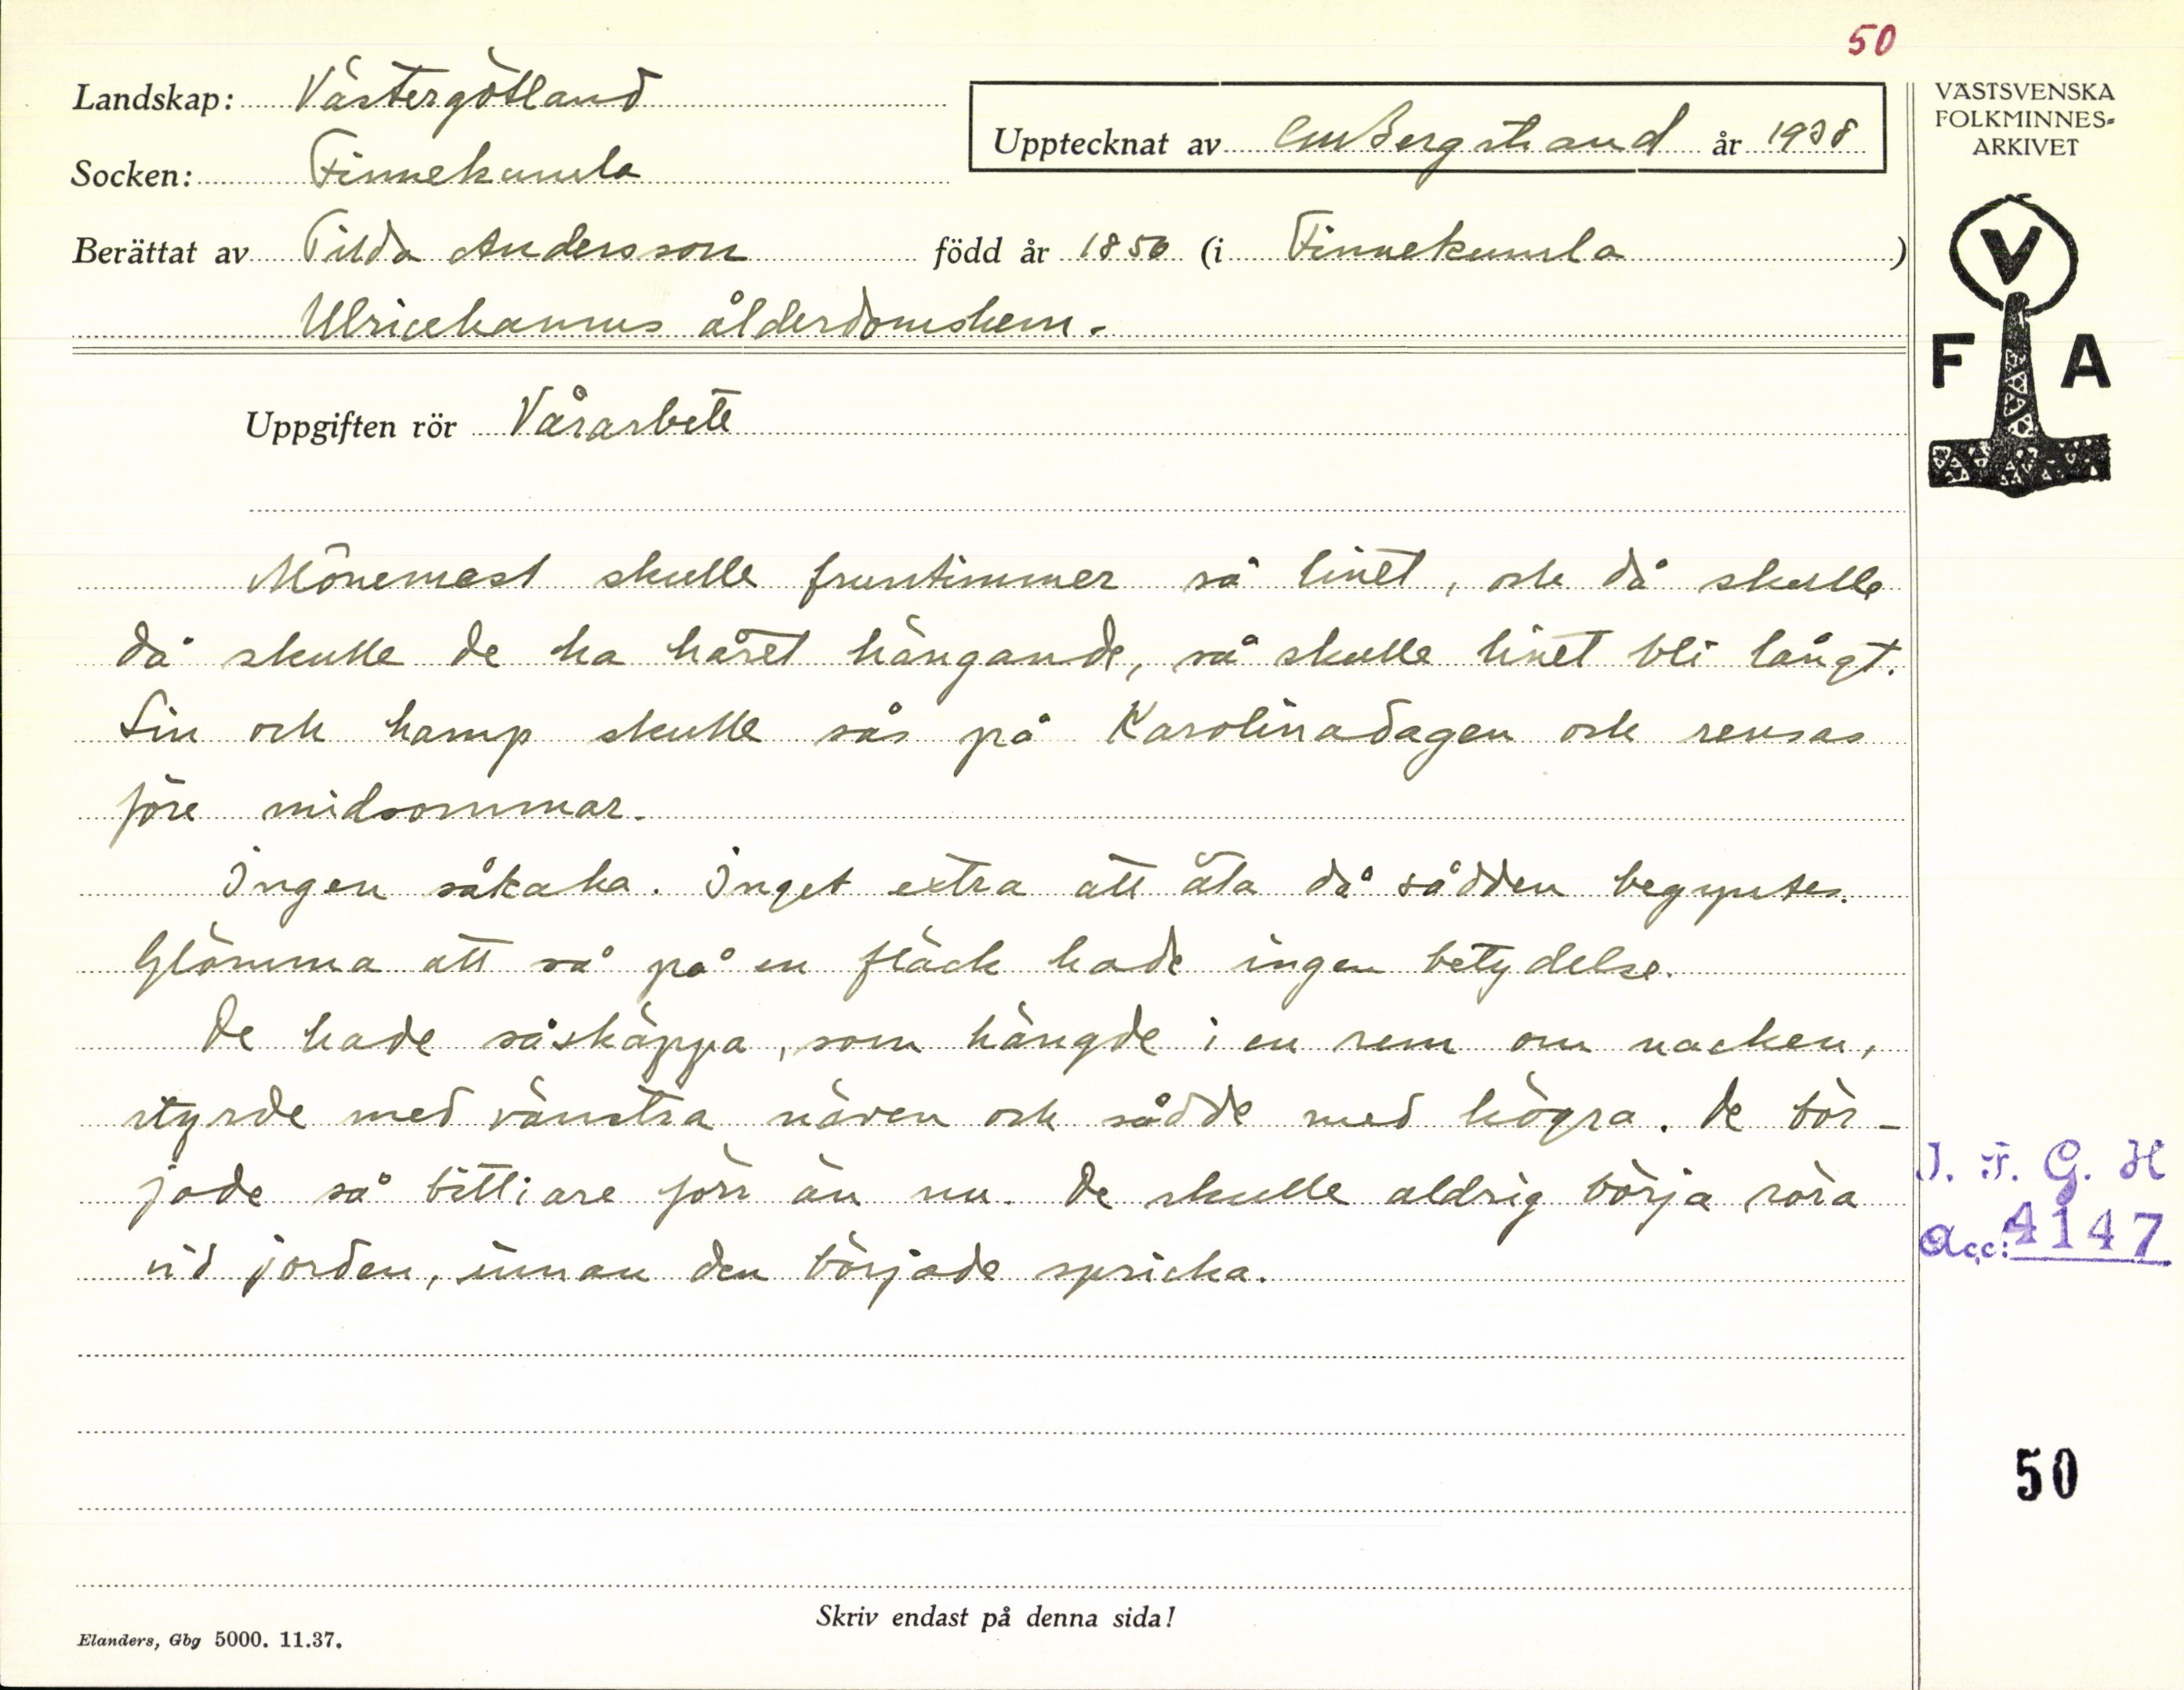 50
Landskap: Västergötland
Upptecknat av CMBergstrand år 1938
VÄSTSVENSKA
FOLKMINNES-
ARKIVET
Socken: Finnekumla
Berättat av Tilda Andersson född år 1850 (i Finnekumla)
Ulricehamns ålderdomshem.
V
F A
Uppgiften rör Vårarbete
Mönemest skulle fruntimmer så linet, och då skulle
då skulle de ha håret hängande, så skulle linet bli långt.
Lin och hamp skulle sås på Karolinadagen och rensas
före midsommar.
Ingen såkaka. Inget extra att äta då sådden begyntes.
Glömma att så på en fläck hade ingen betydelse.
De hade såskäppa, som hängde i en rem om nacken,
styrde med vänstra näven och sådde med högra. De bör-
jade så bittiare förr än nu. De skulle aldrig börja röra
vid jorden, innan den började spricka.
I. F. G. H
Acc: 4147
50
Skriv endast på denna sida!
Elanders, Gbg 5000. 11.37.